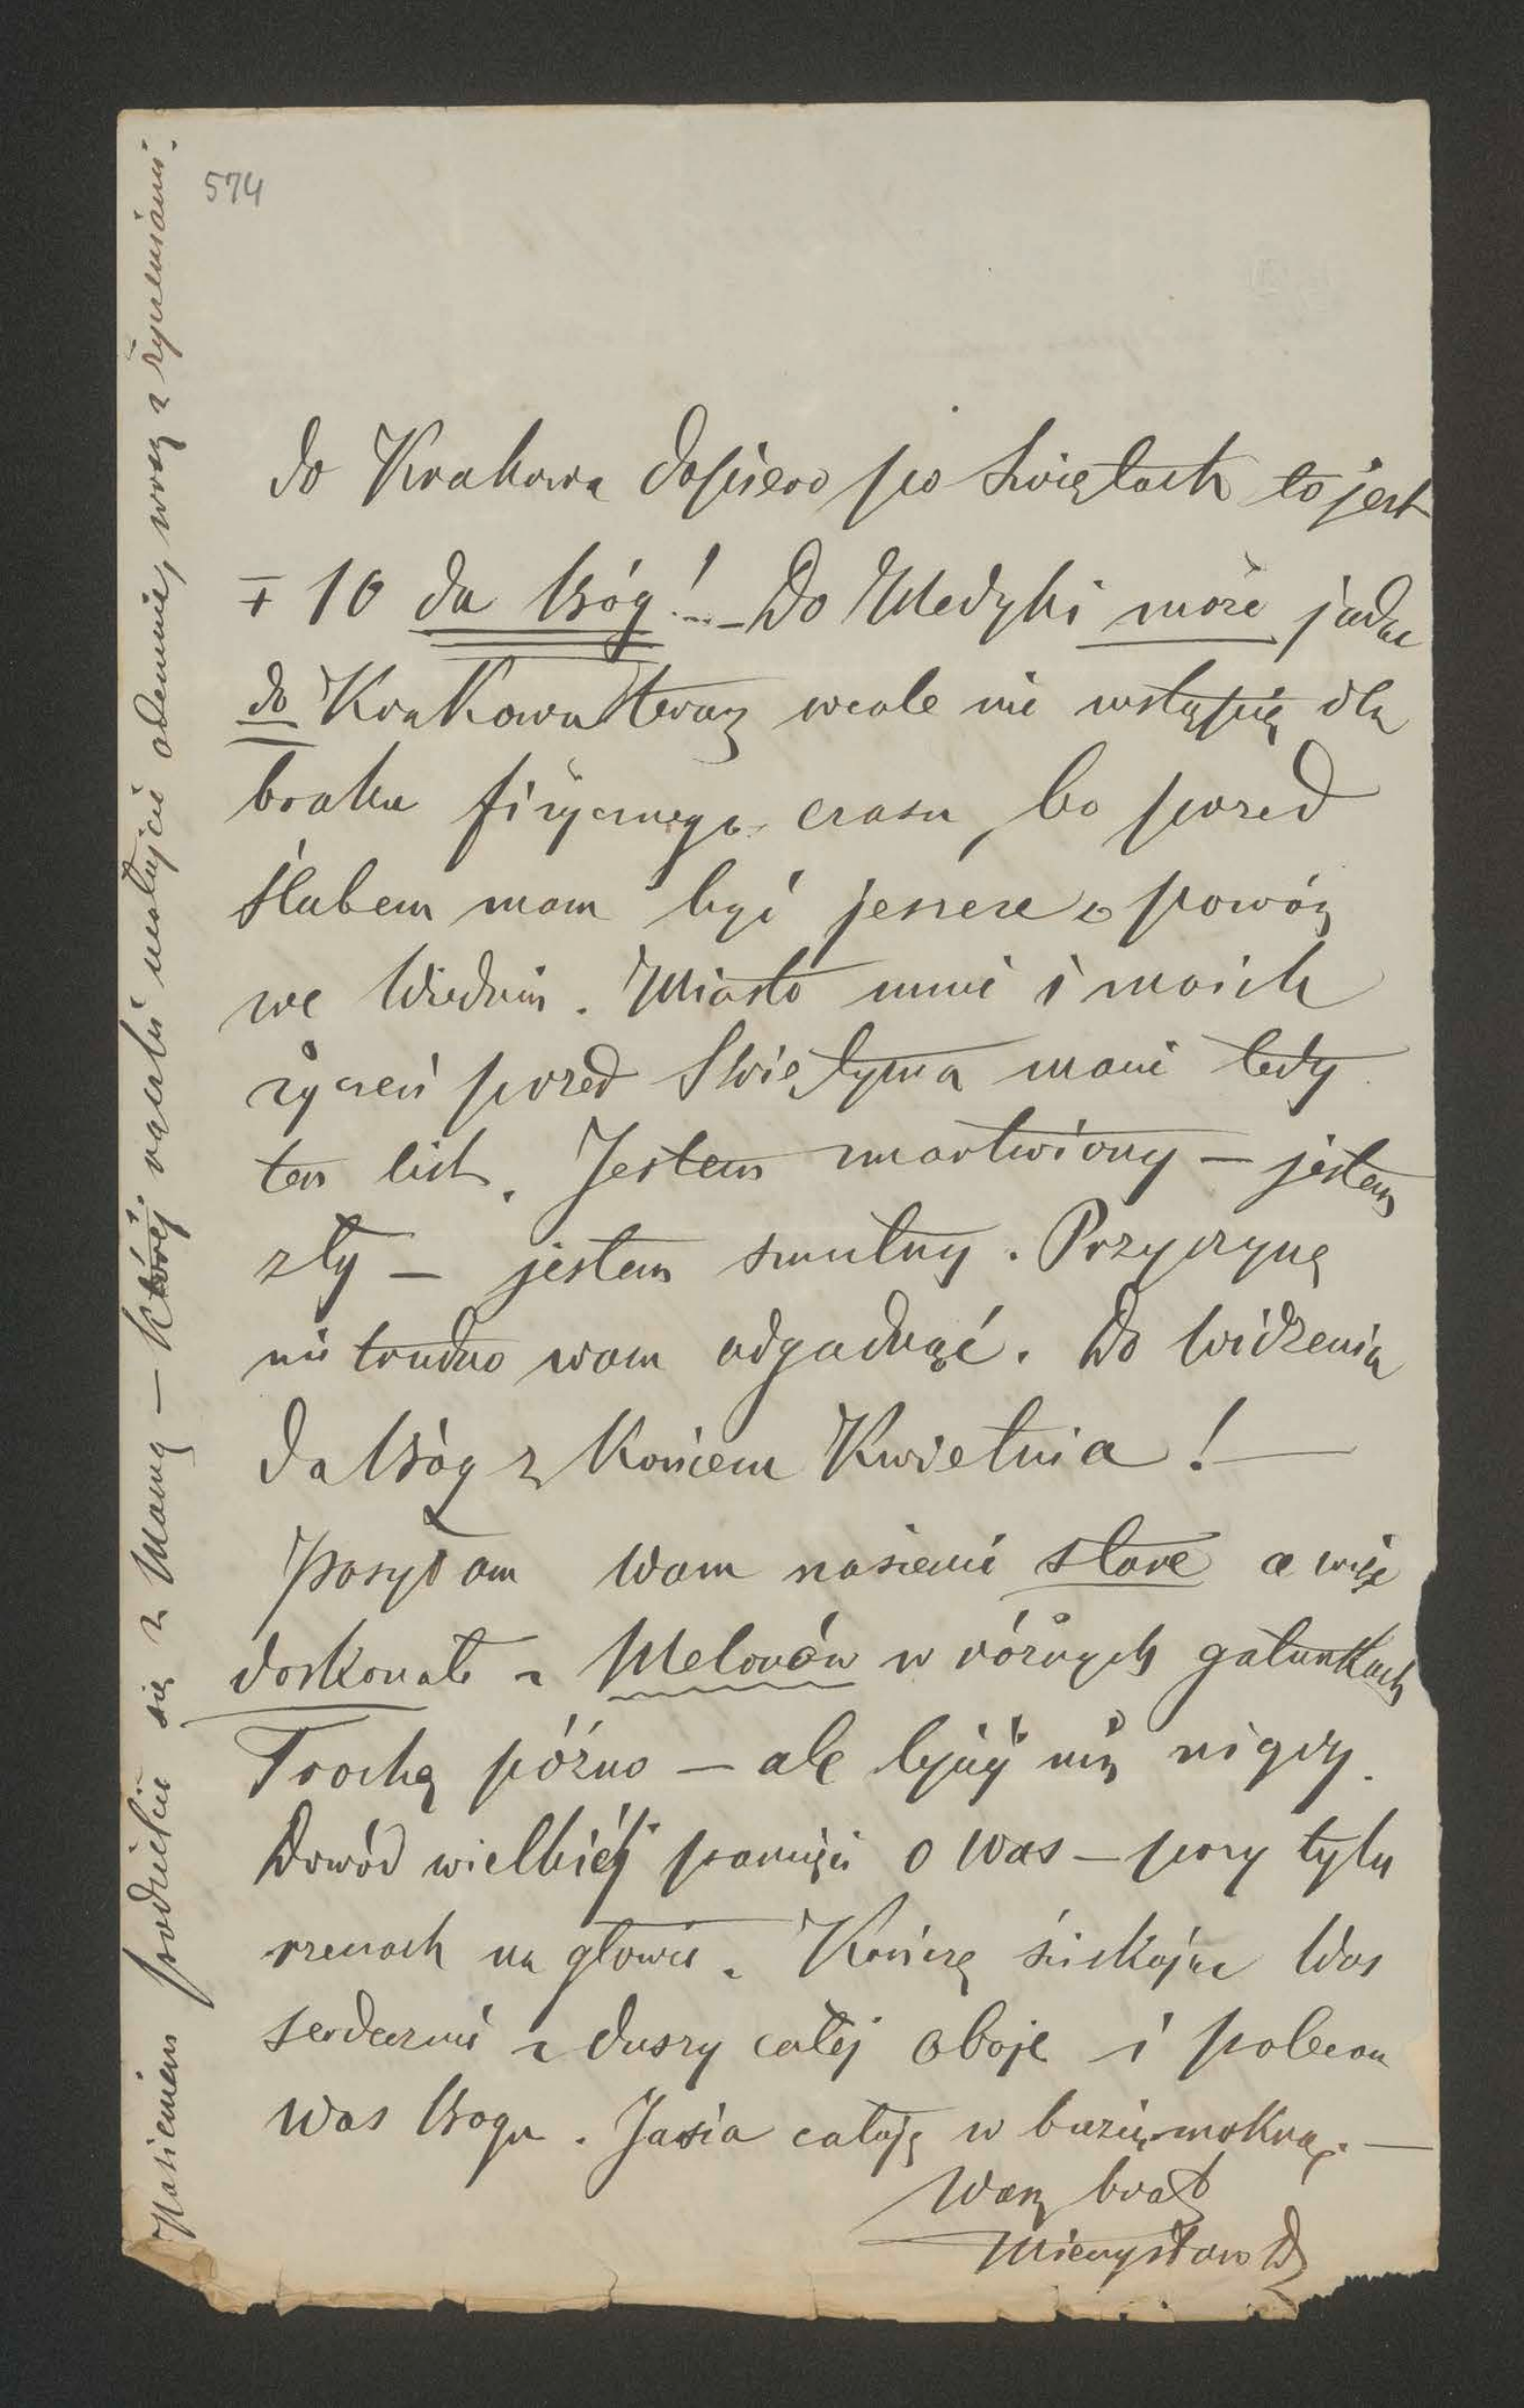 574
do Krakowa dopiero po świętach to jest
∓ 10 da Bóg! – Do Medyki może jadąc
do Krakowa teraz wcale nie wstąpię dla
braku fizycznego czasu, bo przed
ślubem mam być jeszcze
we Wiedniu. Miasto mnie i moich
życzeń przed Świętyma macie tedy
ten list. Jestem zmartwiony – jestem
zły – jestem smutny. Przyczynę
nie trudno wam odgadnąć. Do widzenia
da Bóg z końcem Kwietnia! –
Posyłam Wam nasienie stare a więc
doskonałe z Melonów w różnych gatunkach
Trochę późno – ale lepiej niż nigdy.
Dowód wielkiéj pamięci o Was – przy tylu
rzeczach na głowie. Kończę ściskając Was
serdecznie z duszy całej oboje i polecam
Was Bogu. Jasia całuję w buzię mokrą. –
Wasz brat
Mieczysław D
Nasieniem podzielcie się z Mamą – któréj rączki ucałujcie odemnie, wraz z życzeniami.